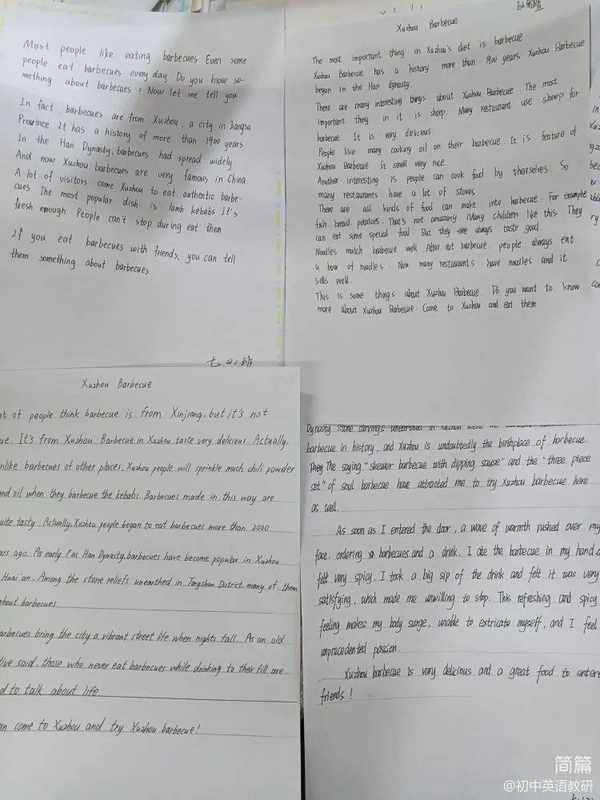 Most people like eating barbecues Even some
people eat barbecues every day Do you know so-
mething about barbecues? Now let me tell you
In fact barbecues are from Xuzhou, a city in Jiangsu
Province It has a history of more than 1900 years
In the Han Dynasty, barbecues had spread widely
And now Xuzhou barbecues are very famous in China
A lot of visitors come Xuzhou to eat authentic barbe-
cues The most popular dish is lamb kebabs It's
fresh enough People can't stop during eat them
If you eat barbecues with friends, you can tell
them something about barbecues
Xuzhou Barbecue
The most important thing in Xuzhou's diet is barbecue
Xuzhou Barbecue has a history more than years, Xuzhou Barbecue
began in the Han dynasty
There are many interesting things about Xuzhou Barbecue. The most
important they in it is sheep. Many restaurant use sheep for
barbecue It is very delicious
People like many cooking oil on their barbecue. It is feature of
Xuzhou Barbecue It smell very nice
Another interesting is people can cook food by themselves. So
many restaurants have a lot of stoves
There are all kinds of food can make into barbecue. For example
fish bread potatoes. That's not Many children like this. They
can eat some special food. But they are always taste good
Noodles match barbecue well After eat barbecue people always eat
a bow of noodles. Now many restaurants have noodles and it
sells well.
This is some things about Xuzhou Barbecue. Do you want to know
more about Xuzhou Barbecue. Come to Xuzhou and eat them
Xuzhou Barbecue
of people think barbecue is from Xinjiang, but it's not
It's from Xuzhou. Barbecue in Xuzhou taste very delicious. Actually,
unlike barbecues of other places, Xuzhou people will sprinkle much chili powder
and oil when they barbecue the kebabs. Barbecues made in this way are
quite tasty Actually, Xuzhou people began to eat barbecues more than 2000
ago. As early as Han Dynasty, barbecues have become popular in Xuzhou
Huai an. Among the stone reliefs unearthed in Tongshan District, many of them
about barbecues.
barbecues bring the city a vibrant street life when nights fall. As an old
said, those who never eat barbecues while drinking to their fill are
to talk about life
come to Xuzhou and try Xuzhou barbecue!
Dynasty stone carvings unearthed in Xuzhou
barbecue in history, and Xuzhou is undoubtedly the birthplace of barbecue.
The saying "skewer barbecue with dipping sauce" and the "three piece
set" of soul barbecue have attracted me to try Xuzhou barbecue here
as well.
As soon as I entered the door, a wave of warmth rushed over my
face. ordering barbecues and a drink. I ate the barbecue in my hand
felt very spicy. I took a big sip of the drink and felt it was very
satisfying, which made me unwilling to stop. This refreshing and spicy
feeling makes my body surge, unable to extricate myself, and I feel
unprecedented passion
Xuzhou barbecue is very delicious and a great food to
friends!
简篇
@初中英语教研